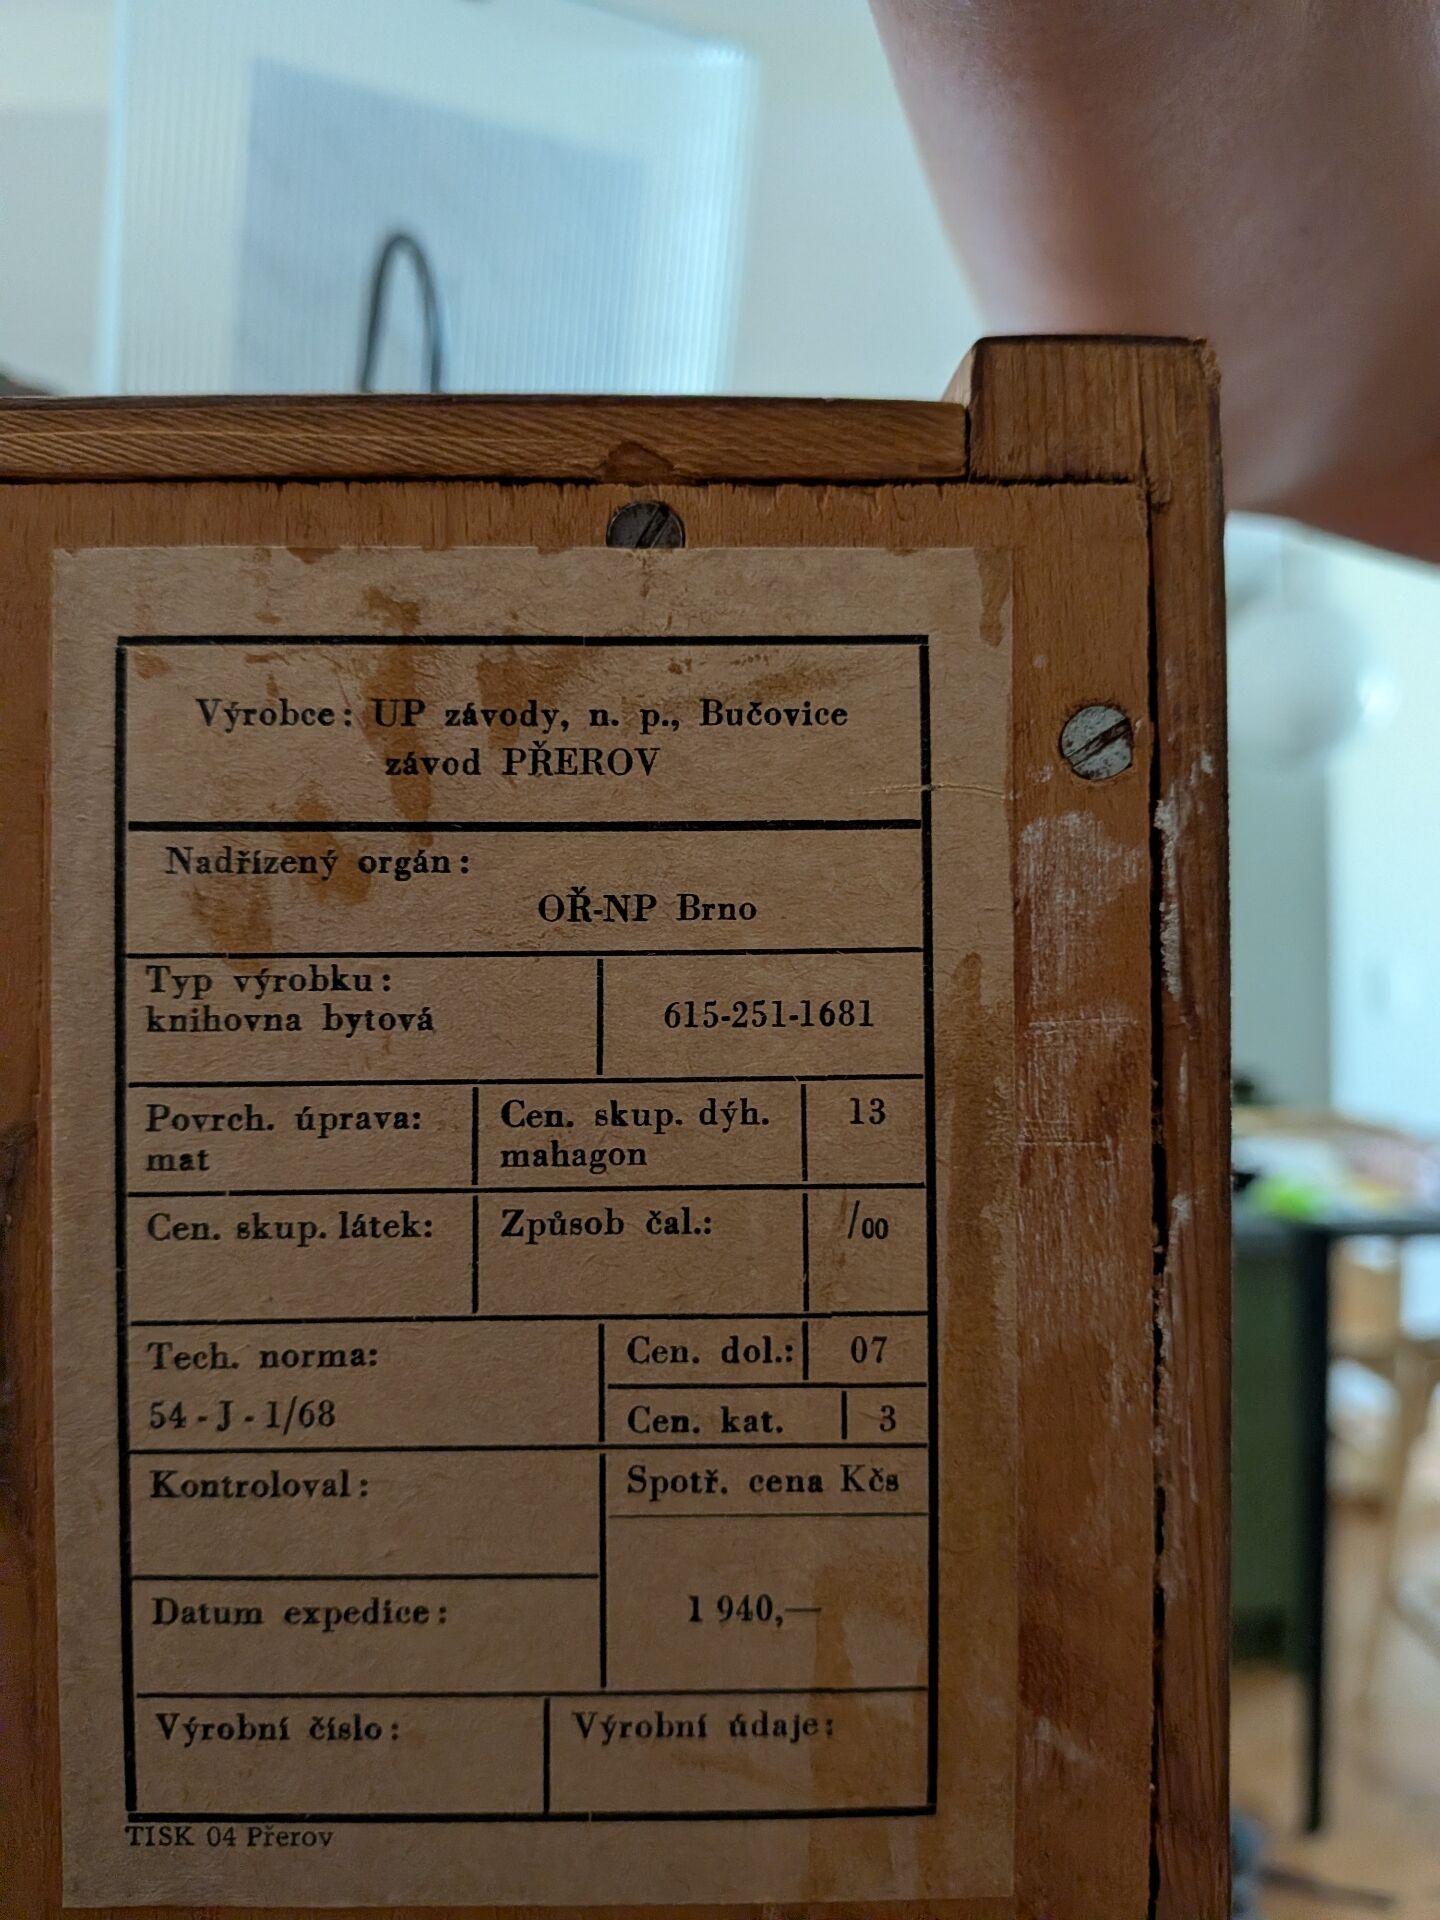 Výrobce: UP závody, n. p., Bučovice
závod PŘEROV
Nadřízený orgán:
OŘ-NP Brno
Typ výrobku:
knihovna bytová
615-251-1681
Povrch. úprava:
mat
Cen. skup. dýh.
mahagon
13
Cen. skup. látek:
Způsob čal.:
/00
Tech. norma:
54 - J - 1/68
Cen. dol.:
07
Cen. kat.
3
Kontroloval:
Spotř. cena Kčs
1 940,—
Datum expedice:
Výrobní číslo:
Výrobní údaje:
TISK 04 Přerov